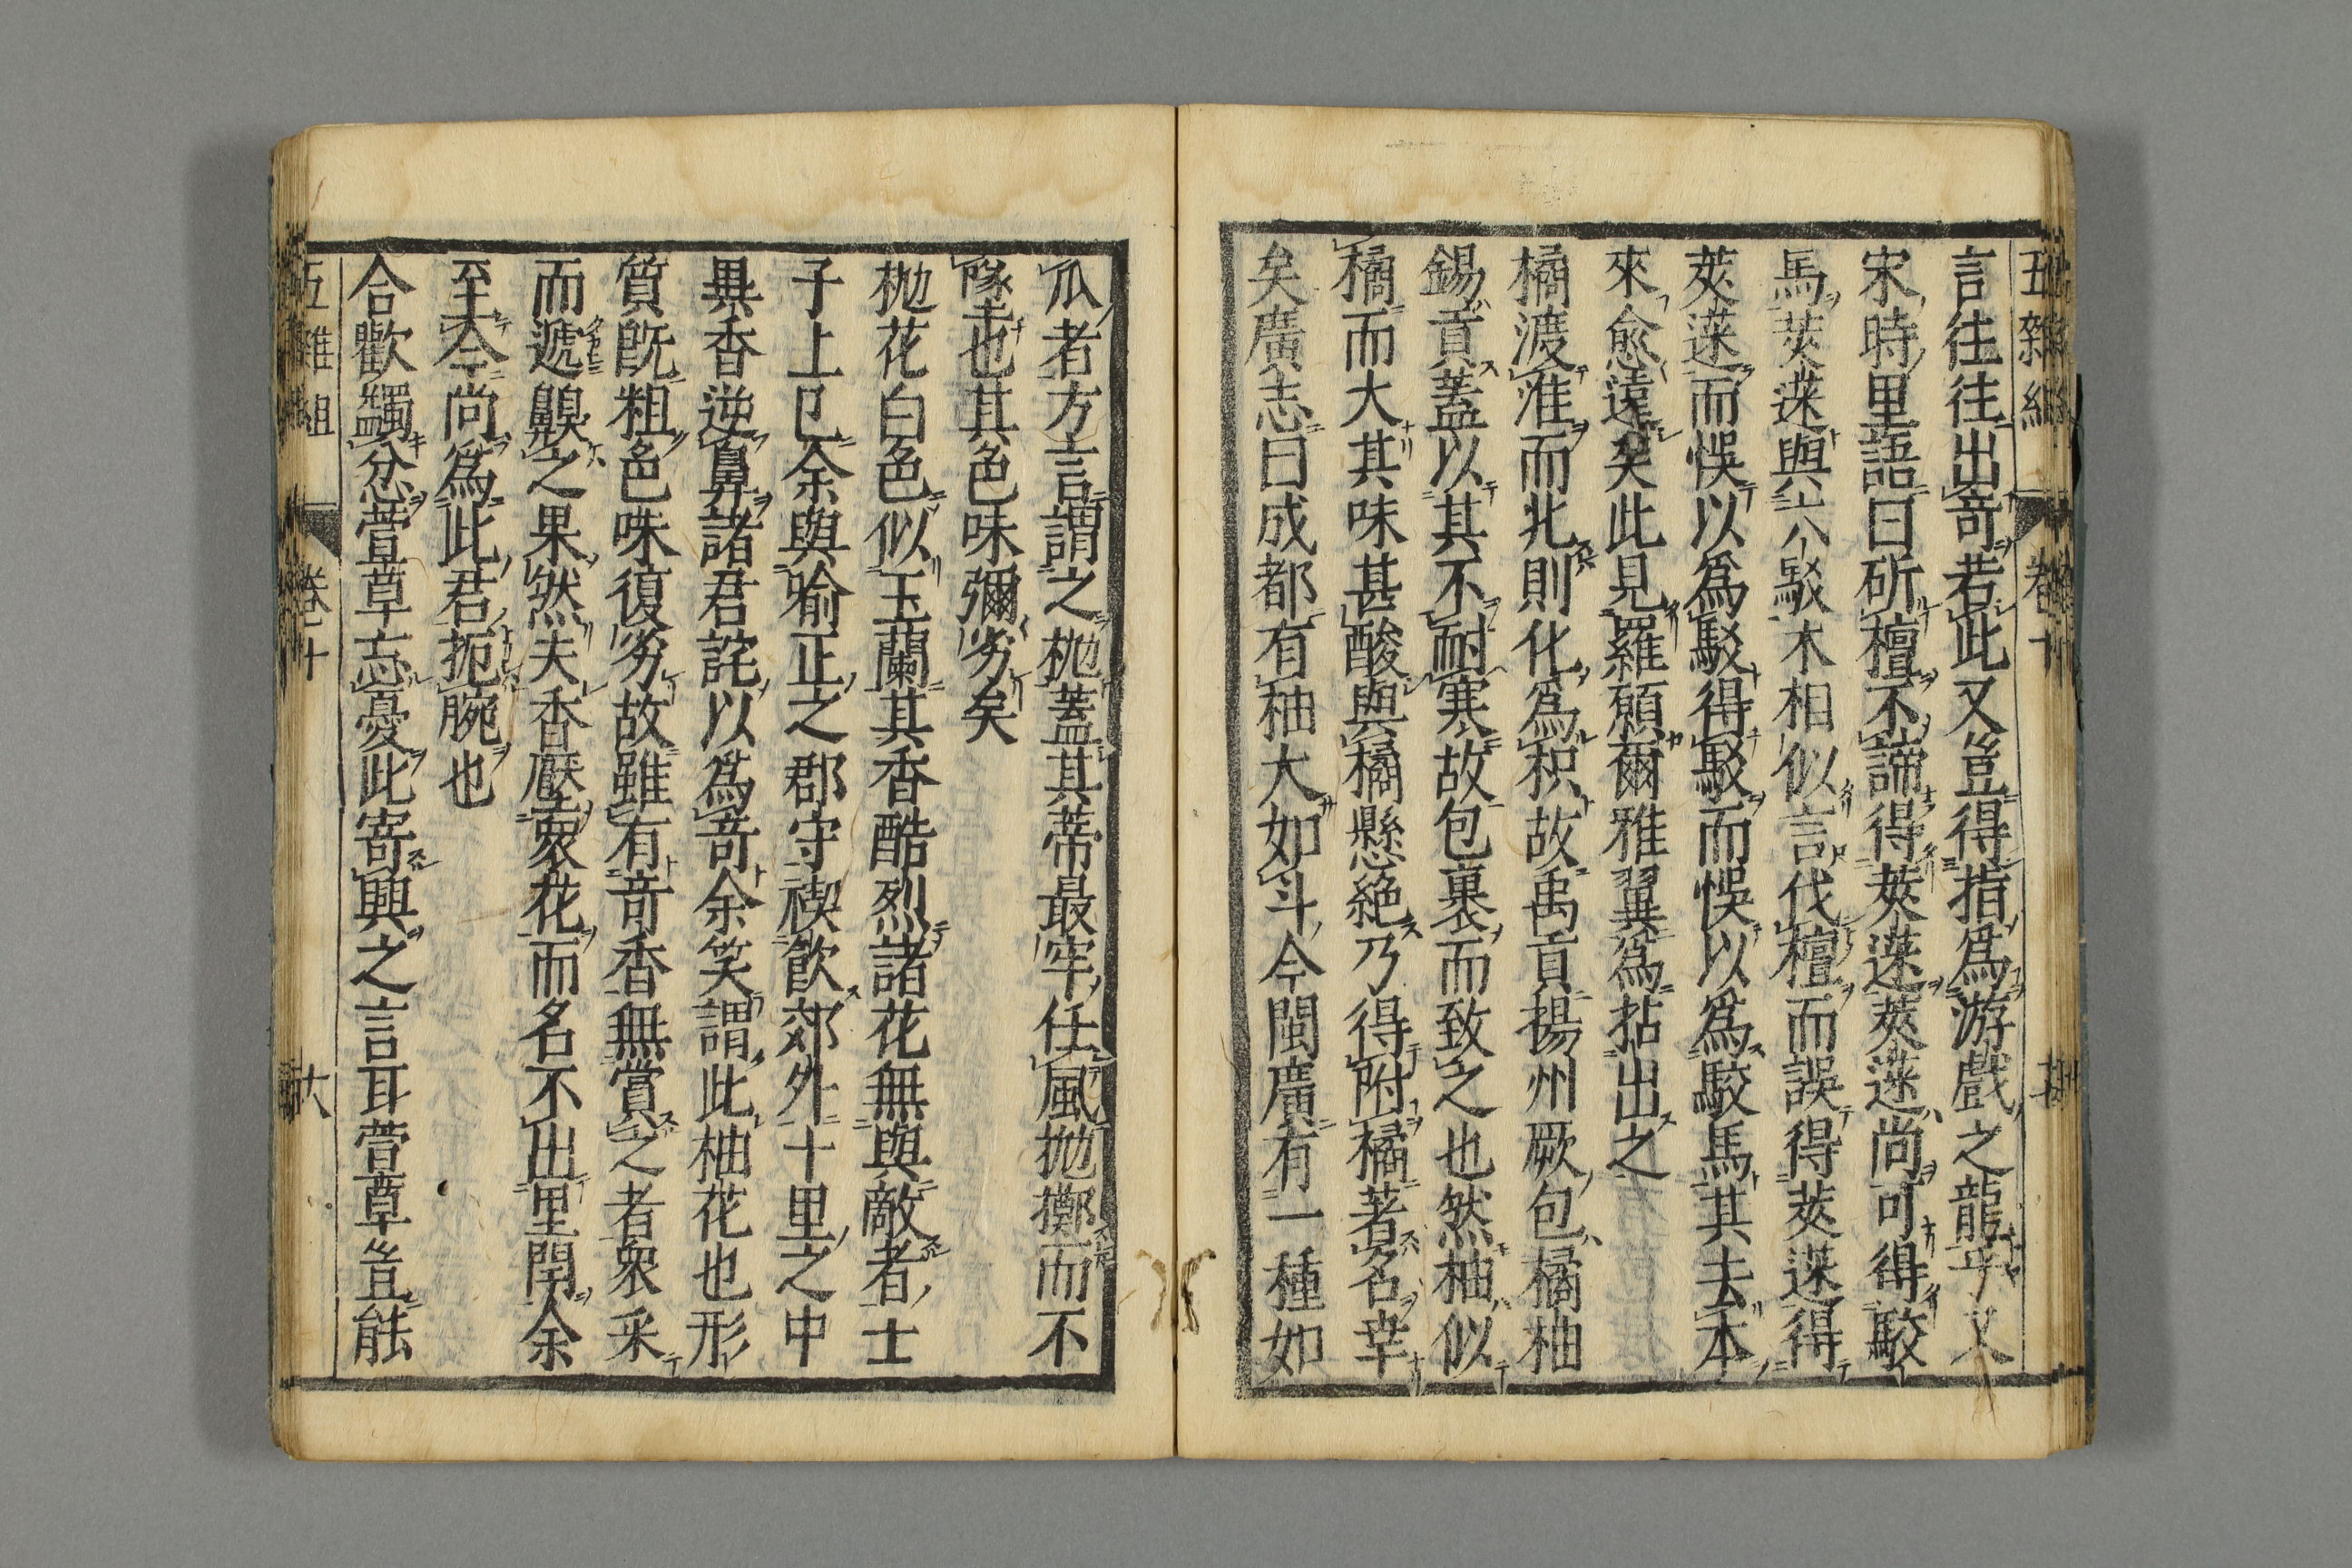 五雜組 卷十
言往往出奇若此又豈得指爲游戲之龍乎又
宋時里語曰斫檀不諦得莢蒾莢蒾尚可得駮
馬莢蒾與六駁木相似言伐檀而誤得莢蒾得
莢蒾而悞以爲駁得駁而悞以爲駮馬其去本
來愈遠矣此見羅願爾雅翼爲拈出之
橘渡淮而北則化爲枳故禹貢揚州厥包橘柚
錫貢蓋以其不耐寒故包裹而致之也然柚似
橘而大其味甚酸與橘懸絶乃得附橘著名幸
矣廣志曰成都有柚大如斗今閩廣有一種如
瓜者方言謂之枹蓋其蒂最牢任風拋擲而不
墜也其色味彌劣矣
枹花白色似玉蘭其香酷烈諸花無與敵者士
子上巳余與喻正之郡守禊飲郊外十里之中
異香逆鼻諸君詫以爲奇余笑謂此柚花也形
質既粗色味復劣故雖有奇香無賞之者衆采
而遞齅之果然夫香壓衆花而名不出里閈余
至今尚爲此君扼腕也
合歡蠲忿萱草忘憂此寄興之言耳萱草豈能
五雜組 卷十 六